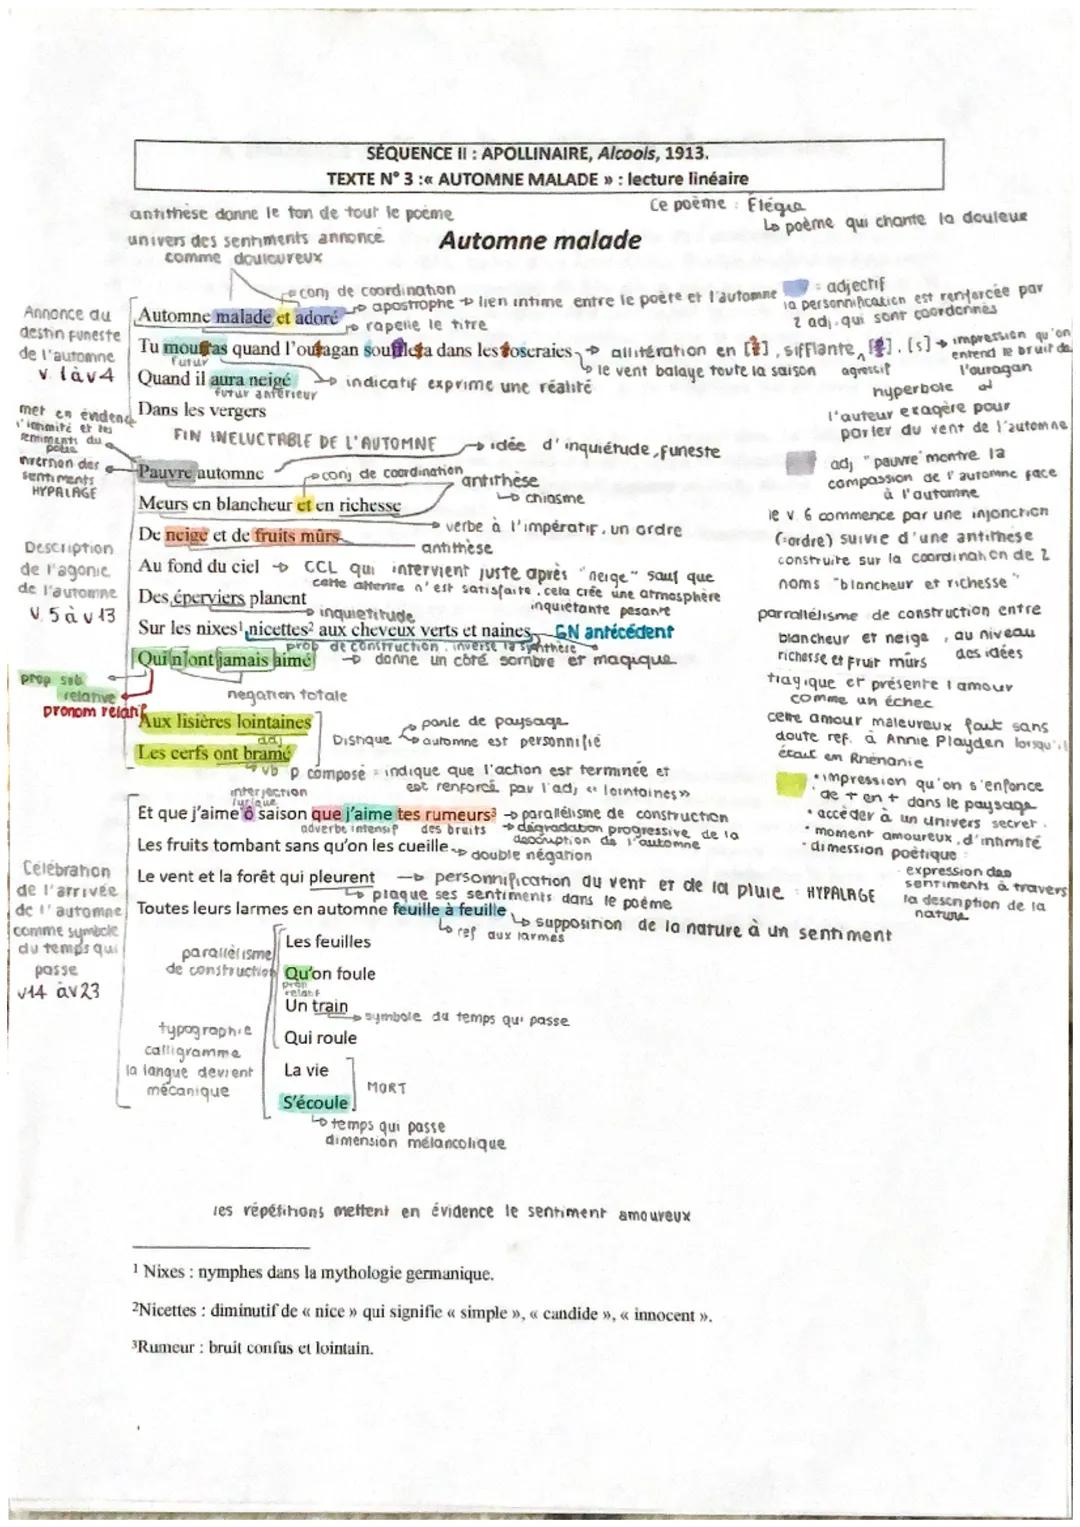 SÉQUENCE II : APOLLINAIRE, Alcools, 1913.
TEXTE N° 3 :« AUTOMNE MALADE » : lecture linéaire
Ce poème : Élégie
↳ poème qui chante la douleur
antithèse donne le ton de tout le poème
univers des sentiments annoncé
comme douloureux
Automne malade
: adjectif
la personnification est renforcée par
2 adj. qui sont coordonnés
conj de coordination
apostrophe → lien intime entre le poète et l'automne
Annonce du
destin funeste
de l'automne
v. 1 à v 4
Automne malade et adoré
rapelle le titre
Tu mourras quand l'ouragan soufflera dans les roseraies
futur
allitération en [r], sifflante, [f], [s] → impression qu'on
entend le bruit de
l'ouragan
agressif
le vent balaye toute la saison
Quand il aura neigé
futur antérieur
indicatif exprime une réalité
hyperbole
l'auteur exagère pour
parler du vent de l'automne
Dans les vergers
met en évidence
l'intimité et les
sentiments du
poète
inversion des
sentiments
HYPALAGE
FIN INELUCTABLE DE L'AUTOMNE → idée d'inquiétude, funeste
adj "pauvre" montre la
compassion de l'automne face
à l'automne
Pauvre automne
conj de coordination
antithèse
↳ chiasme
Meurs en blancheur et en richesse
verbe à l'impératif, un ordre
le v 6 commence par une injonction
(=ordre) suivie d'une antithèse
construite sur la coordination de 2
noms "blancheur et richesse"
De neige et de fruits mûrs
antithèse
Description
de l'agonie
de l'automne
v. 5 à v 13
Au fond du ciel → CCL qui intervient juste après "neige" sauf que
cette attente n'est satisfaite. cela crée une atmosphère
inquiétante pesante
Des éperviers planent
inquietitude
parrallélisme de construction entre
blancheur et neige, au niveau
richesse et fruit mûrs des idées
Sur les nixes¹ nicettes² aux cheveux verts et naines
GN antécédent
prop de construction, inverse la synthèse
Qui n'ont jamais aimé → donne un côté sombre et magique
tragique et présente l'amour
comme un échec
cette amour maleureux fait sans
doute ref. à Annie Playden lorsqu'il
était en Rhénanie
prop sub
relative
pronom relatif
negation totale
Aux lisières lointaines
adj
Les cerfs ont bramé
Distique
parle de paysage
automne est personnifié
vb p composé = indique que l'action est terminée et
est renforcé par l'adj « lointaines »
• impression qu'on s'enfonce
de + en + dans le paysage
• accèder à un univers secret
• moment amoureux, d'intimité
• dimession poètique :
expression des
sentiments à travers
la description de la
nature
interjection
lyrique
Et que j'aime ô saison que j'aime tes rumeurs³ → parallélisme de construction
adverbe intensif
des bruits
dégradation progressive de la
description de l'automne
Les fruits tombant sans qu'on les cueille
double négation
Célébration
de l'arrivée
de l'automne
comme symbole
du temps qui
passe
v14 à v23
Le vent et la forêt qui pleurent → personnification du vent et de la pluie : HYPALAGE
↳ plaque ses sentiments dans le poème
Toutes leurs larmes en automne feuille à feuille
↳ ref aux larmes
↳ supposition de la nature à un sentiment
parallèlisme
de construction
Les feuilles
Qu'on foule
pron
relatif
Un train
symbole du temps qui passe
typographie
calligramme
la langue devient
mécanique
Qui roule
La vie
S'écoule
MORT
↳ temps qui passe
dimension mélancolique
les répétitions mettent en évidence le sentiment amoureux
¹ Nixes : nymphes dans la mythologie germanique.
²Nicettes : diminutif de « nice » qui signifie « simple », « candide », « innocent ».
³Rumeur : bruit confus et lointain.